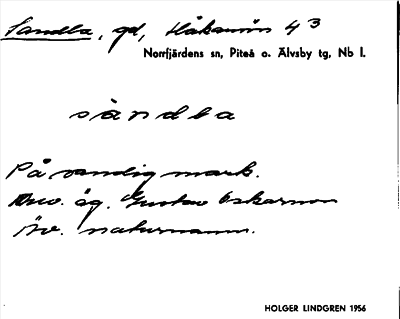 Sandla, gd, Håkansön 4 3
Norrfjärdens sn, Piteå o. Älvsby tg, Nb l.
sàndla
På sandig mark.
Nuv. äg. Gustav Oskarsson
Äv. naturnamn.
HOLGER LINDGREN 1956